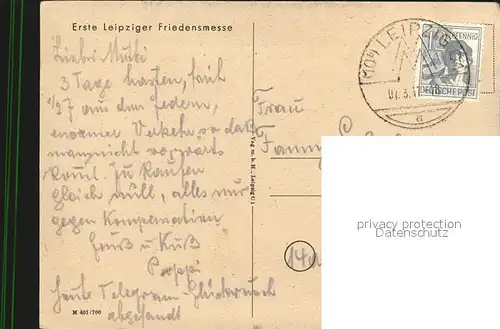 Erste Leipziger Friedensmesse
Liebes Mutti
3 Tage hasten, früh
1/27 aus den Federn,
enormer Verkehr so daß
man nicht vorwärts
kommt. Zu kaufen
gleich null, alles nur
gegen Kompensation
Gruß u Kuß
Pappi
heute Telegram-Glückwunsch
abgesandt
M 401/700
Vag m. b. H., Leipzig C 1
(10b) LEIPZIG
a
PFENNIG
DEUTSCHE POST
Frau
Fanny
14a
privacy protection
Datenschutz